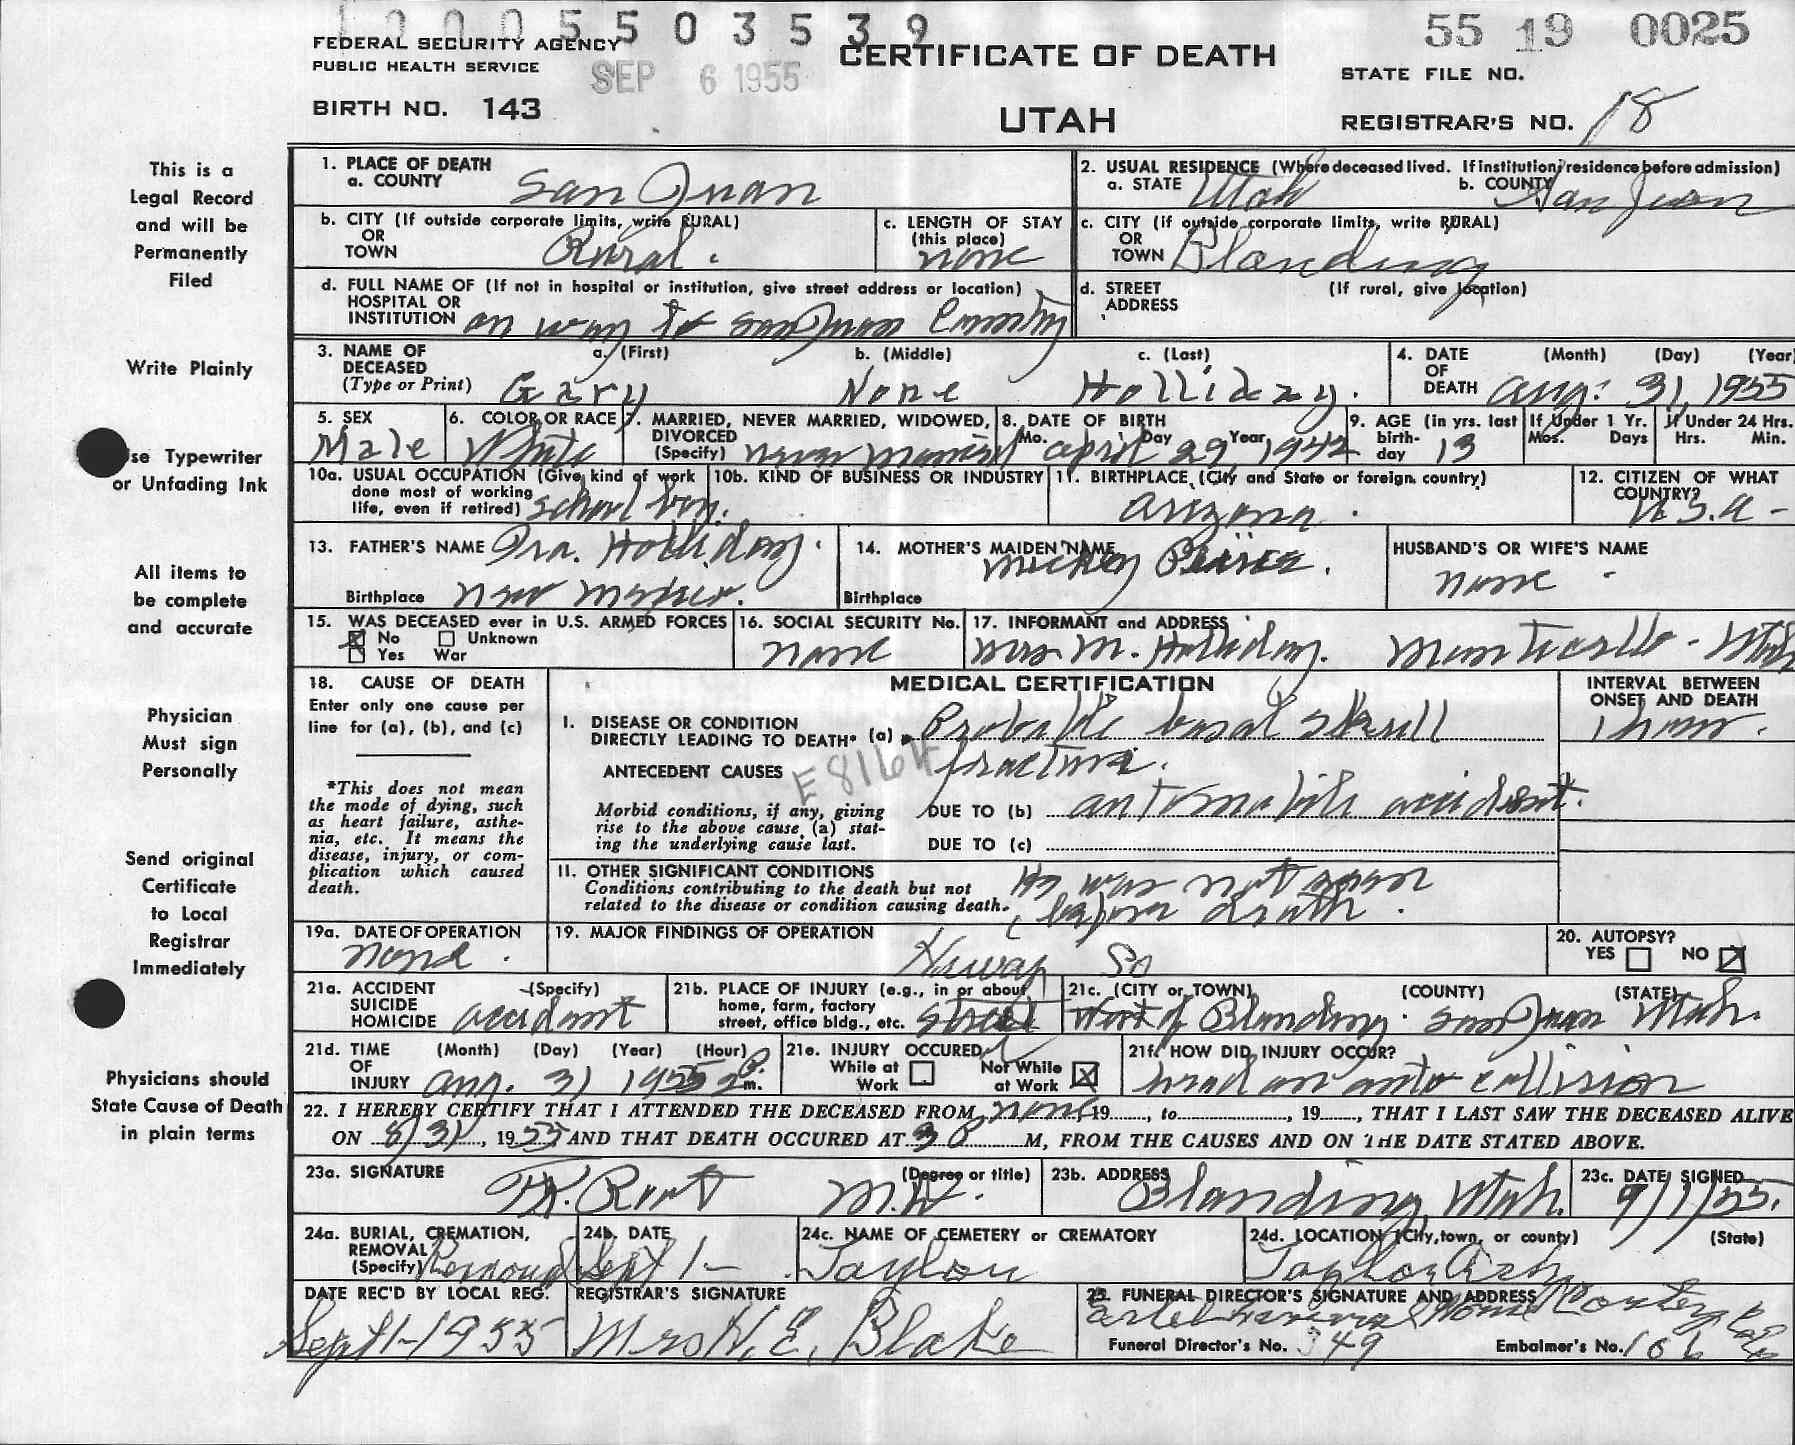 1000 5 5 0 3 5 3 9
55 19 0025
FEDERAL SECURITY AGENCY
PUBLIC HEALTH SERVICE
SEP 6 1955
CERTIFICATE OF DEATH
STATE FILE NO.
BIRTH NO. 143
UTAH
REGISTRAR'S NO. 18
This is a
Legal Record
and will be
Permanently
Filed
Write Plainly
se Typewriter
or Unfading Ink
All items to
be complete
and accurate
Physician
Must sign
Personally
Send original
Certificate
to Local
Registrar
Immediately
Physicians should
State Cause of Death
in plain terms
1. PLACE OF DEATH
a. COUNTY San Juan
2. USUAL RESIDENCE (Where deceased lived. If institution, residence before admission)
a. STATE Utah b. COUNTY San Juan
b. CITY (If outside corporate limits, write RURAL)
OR
TOWN Rural.
c. LENGTH OF STAY
(this place)
none
c. CITY (If outside corporate limits, write RURAL)
OR
TOWN Blanding
d. FULL NAME OF (If not in hospital or institution, give street address or location)
HOSPITAL OR
INSTITUTION on way to San Juan County
d. STREET (If rural, give location)
ADDRESS
3. NAME OF DECEASED (Type or Print)
a. (First) b. (Middle) c. (Last)
Gary None Holliday.
4. DATE OF DEATH (Month) (Day) (Year)
Aug. 31, 1955
5. SEX
Male
6. COLOR OR RACE
White
7. MARRIED, NEVER MARRIED, WIDOWED,
DIVORCED
(Specify) never married
8. DATE OF BIRTH
Mo. Day Year
april 29 1942
9. AGE (in yrs. last
birth-
day 13
If Under 1 Yr.
Mos. Days
If Under 24 Hrs.
Hrs. Min.
10a. USUAL OCCUPATION (Give kind of work
done most of working
life, even if retired) school boy.
10b. KIND OF BUSINESS OR INDUSTRY
11. BIRTHPLACE (City and State or foreign country)
Arizona.
12. CITIZEN OF WHAT
COUNTRY?
U.S.A -
13. FATHER'S NAME Ira. Holliday.
Birthplace New Mexico.
14. MOTHER'S MAIDEN NAME
Mickey
Birthplace
HUSBAND'S OR WIFE'S NAME
none -
15. WAS DECEASED ever in U.S. ARMED FORCES
No Unknown
Yes War
16. SOCIAL SECURITY No.
none
17. INFORMANT and ADDRESS
Mrs. M. Holliday. Monticello - Utah
18. CAUSE OF DEATH
Enter only one cause per
line for (a), (b), and (c)
*This does not mean
the mode of dying, such
as heart failure, asthe-
nia, etc. It means the
disease, injury, or com-
plication which caused
death.
MEDICAL CERTIFICATION
INTERVAL BETWEEN
ONSET AND DEATH
1 hour.
I. DISEASE OR CONDITION
DIRECTLY LEADING TO DEATH* (a) Probable basal skull
fracture.
ANTECEDENT CAUSES
E8164
Morbid conditions, if any, giving
rise to the above cause, (a) stat-
ing the underlying cause last.
DUE TO (b) automobile accident.
DUE TO (c)
11. OTHER SIGNIFICANT CONDITIONS
Conditions contributing to the death but not
related to the disease or condition causing death.
He was not seen
before death.
19a. DATE OF OPERATION
None.
19. MAJOR FINDINGS OF OPERATION
20. AUTOPSY?
YES NO
21a. ACCIDENT (Specify)
SUICIDE
HOMICIDE accident
21b. PLACE OF INJURY (e.g., in or about
home, farm, factory
street, office bldg., etc. street
Hiway So
21c. (CITY or TOWN) (COUNTY) (STATE)
West of Blanding. San Juan Utah.
21d. TIME (Month) (Day) (Year) (Hour)
OF
INJURY Aug. 31 1955 2 P. m.
21e. INJURY OCCURED
While at
Work
Not While
at Work
21f. HOW DID INJURY OCCUR?
head on auto collision
22. I HEREBY CERTIFY THAT I ATTENDED THE DECEASED FROM none, 19......, to......, 19......, THAT I LAST SAW THE DECEASED ALIVE
ON 8/31, 1955 AND THAT DEATH OCCURED AT 3 P M, FROM THE CAUSES AND ON THE DATE STATED ABOVE.
23a. SIGNATURE (Degree or title)
M.D.
23b. ADDRESS
Blanding, Utah.
23c. DATE SIGNED
9/1/55.
24a. BURIAL, CREMATION,
REMOVAL
(Specify) Removal
24b. DATE
Sept 1-
24c. NAME OF CEMETERY or CREMATORY
Taylor
24d. LOCATION (City, town, or county) (State)
Taylor Ariz
DATE REC'D BY LOCAL REG.
Sept 1-1955
REGISTRAR'S SIGNATURE
Mrs H. E. Blake
25. FUNERAL DIRECTOR'S SIGNATURE AND ADDRESS
Ertel Funeral Home Cortez
Funeral Director's No. 349 Embalmer's No. 166